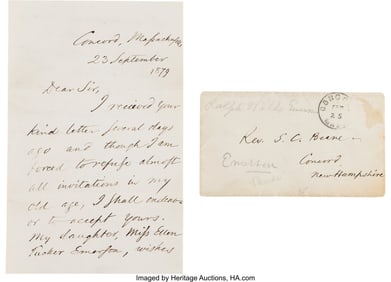 Concord, Massachusetts,
23 September
1879
Dear Sir,
I received your
kind letter several days
ago and though I am
forced to refuse almost
all invitations in my
old age, I shall endeavor
or to accept yours.
My daughter, Miss Ellen
Tucker Emerson, wishes
Ralph Waldo Emerson
CONCORD
25
Rev. S. C. Beane
Emerson
Concord
New Hampshire
Imaged by Heritage Auctions, HA.com